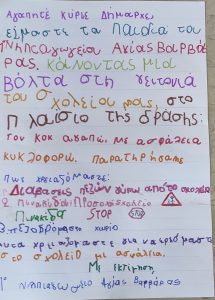 Αγαπητέ κύριε Δήμαρχε,
είμαστε τα παιδιά του
Νηπιαγωγείου Αγίας Βαρβά
ρας. Κάνοντας μία
βόλτα στη γειτονιά
του σχολείου μας, στο
πλαίσιο της δράσης:
τον ΚΟΚ αγαπώ, με ασφάλεια
κυκλοφορώ. Παρατηρήσαμε
πως χρειαζόμαστε:
Διαβάσεις πεζών γύρω από το σχολείο
Πινακίδα
STOP
STOP
πεζοδρόμιο
για να ερχόμαστε
στο σχολείο με ασφάλεια.
Με εκτίμηση
1ο Νηπιαγωγείο Αγίας Βαρβάρας